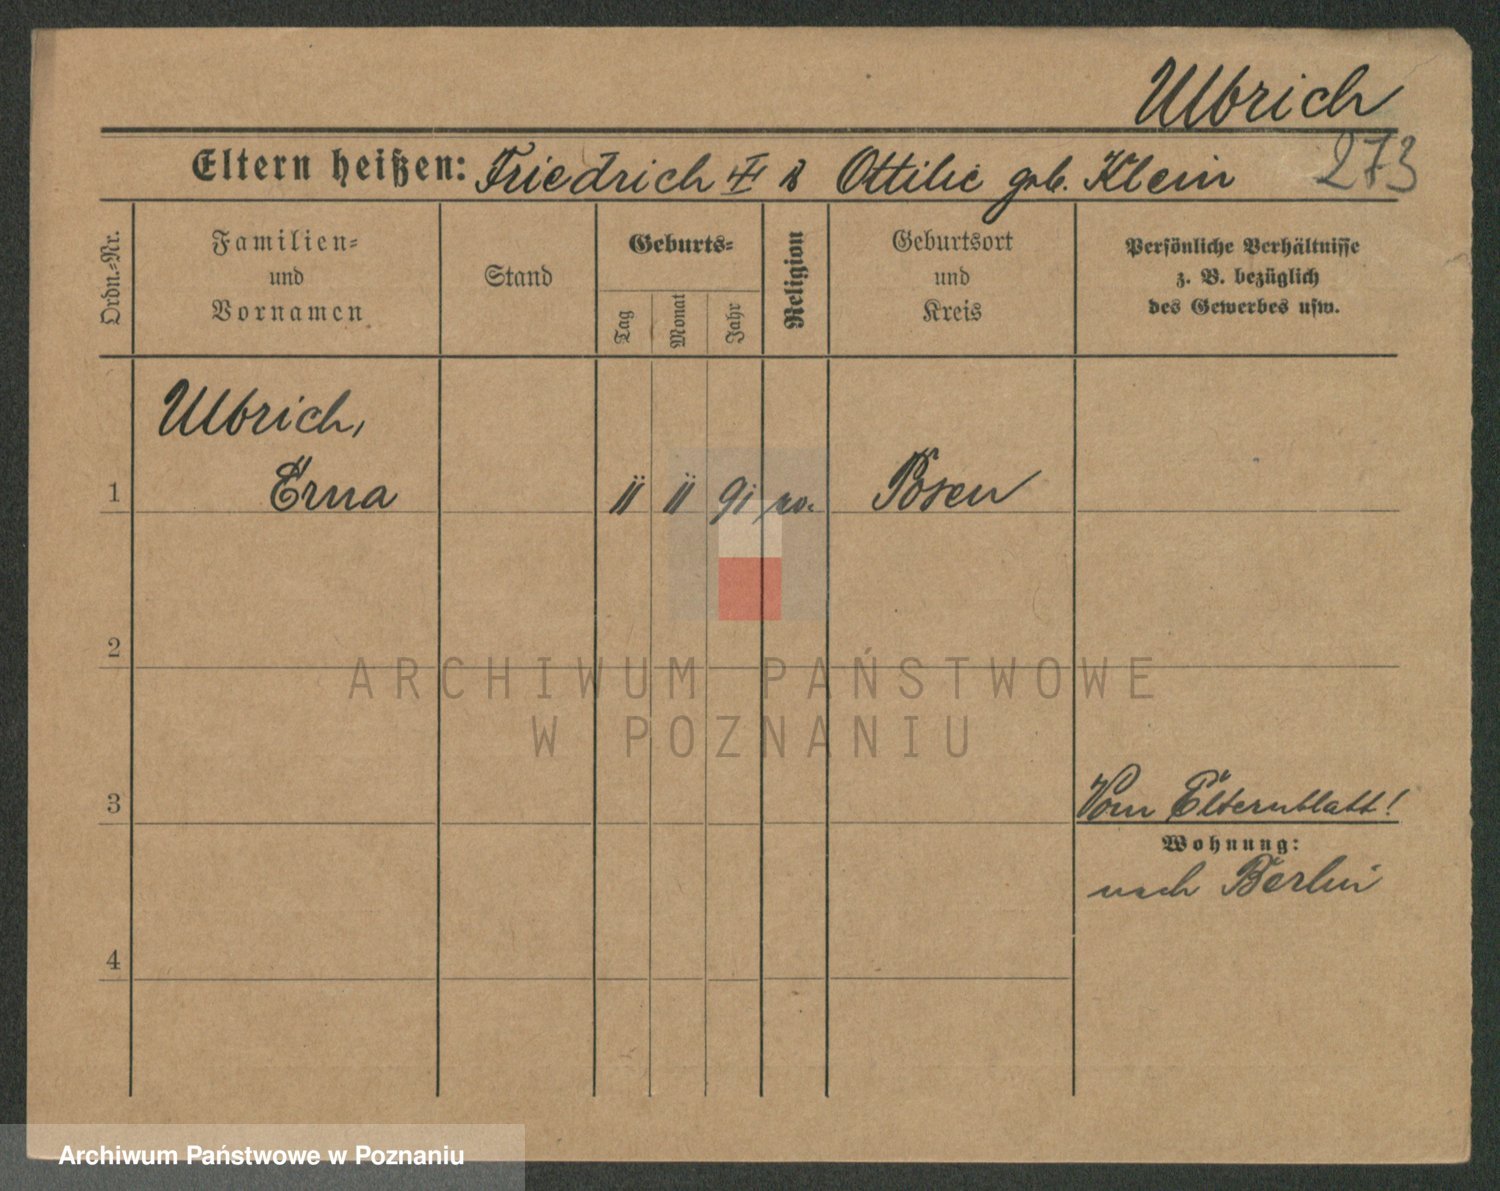 Ulbrich
Eltern heißen: Friedrich Ottilie geb. Klein 273
Ordn.-Nr.
Familien-
und
Vornamen
Stand
Geburts-
Tag
Monat
Jahr
Religion
Geburtsort
und
Kreis
Persönliche Verhältnisse
z. B. bezüglich
des Gewerbes usw.
Ulbrich,
1 Erna 91 Posen
2
ARCHIWUM PAŃSTWOWE
W POZNANIU
3
Vom Elternblatt!
Wohnung:
nach Berlin
4
Archiwum Państwowe w Poznaniu